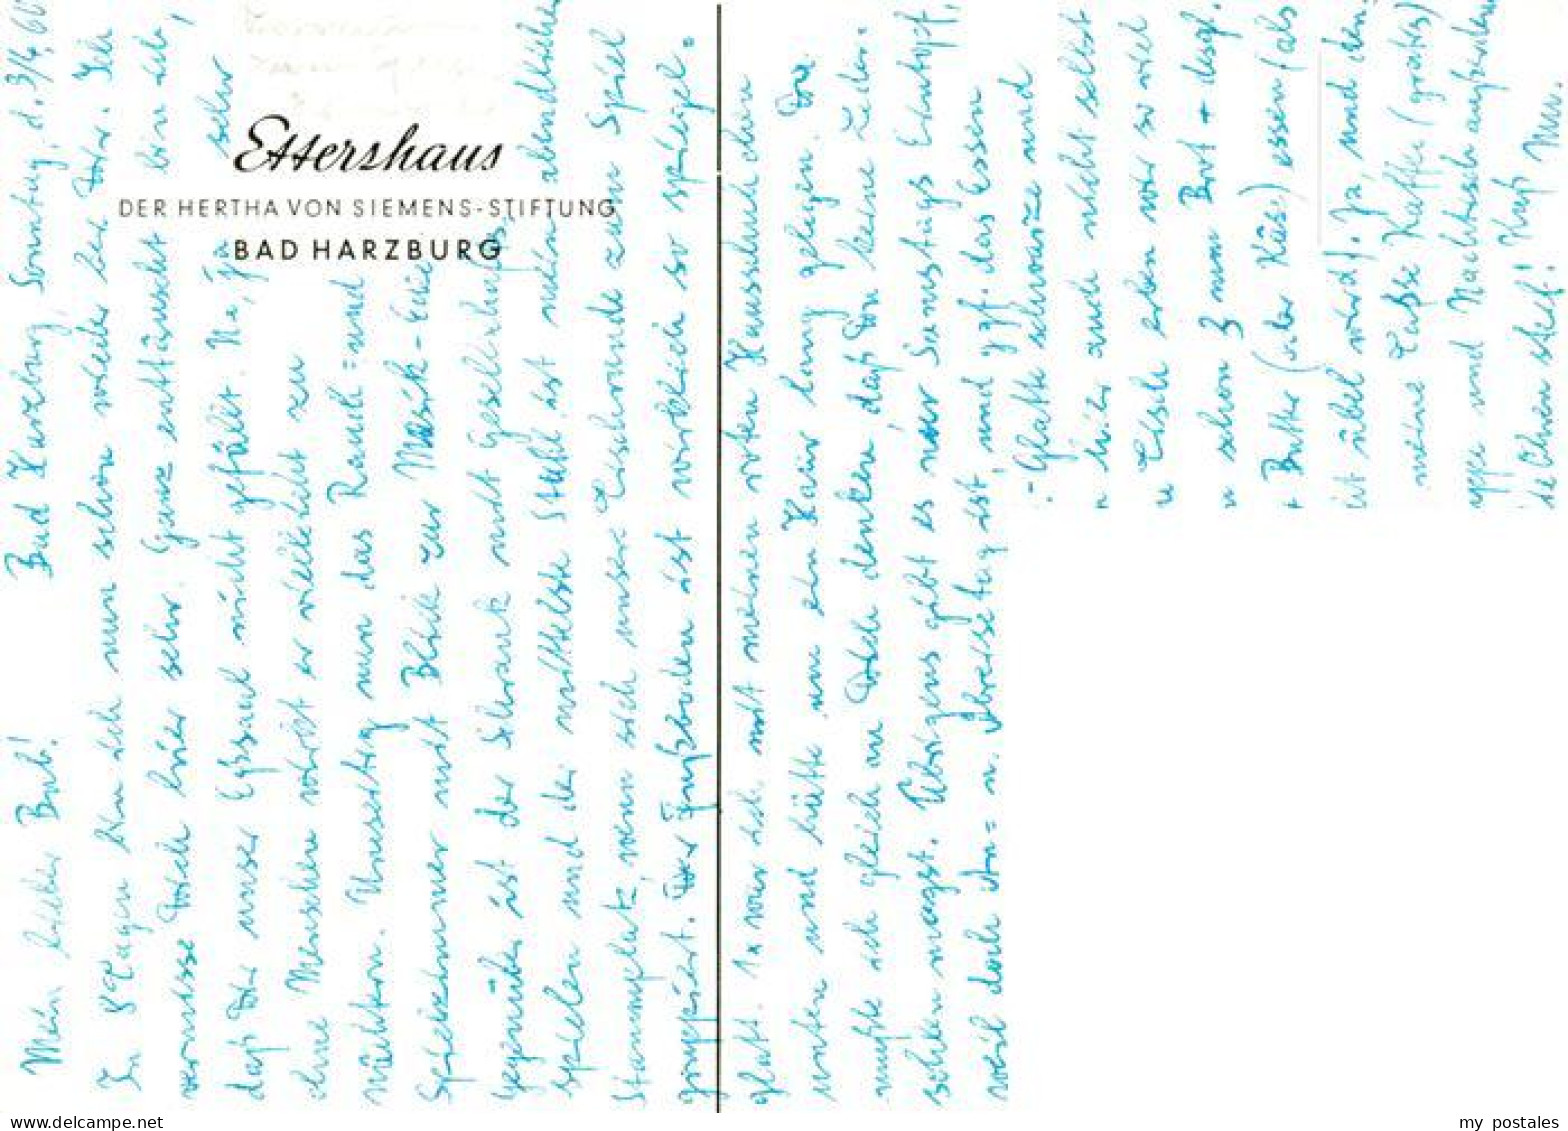 Ettershaus
DER HERTHA VON SIEMENS-STIFTUNG
BAD HARZBURG
Bad Harzburg, Sonntag, d. 3/4.60
Mein lieber Bub!
In 8 Tagen bin ich nun schon wieder bei Dir. Ich
vermisse Dich hier sehr. Ganz enttäuscht bin ich,
daß Dir unser Eßsaal nicht gefällt. Na, ja sehr
ohne Menschen wirkt er vielleicht zu
nüchtern. Umseitig nun das Rauch= und
Spielzimmer mit Blick zur Musik-Ecke
Gegenüber ist der Schrank mit Gesellschafts
spielen und der mittelste Stuhl ist mein abendlicher
Stammplatz, wenn sich unsere Tischrunde zum Spiel
gruppiert. Der Fußboden ist wirklich so spiegel=
glatt. 1x war ich mit meinen roten Hausschuhen
unten und hätte um ein Haar lang gelegen. Da
mußte ich gleich an Dich denken, daß Du keine Leder=
sohlen magst. Übrigens gibt es nur Samstags Eintopf,
weil doch An= u. Abreisetag ist, und ggf. das Essen
Glatte schwarze und
hier auch nicht selbst
Tisch eben wir so viel
schon 3 mm Brot + desgl.
Butter (oder Käse) essen (als
übel wird). Ja, und den=
meine Tasse Kaffee (gratis)
und Nachtisch außerdem
Ohren steht! Muu.